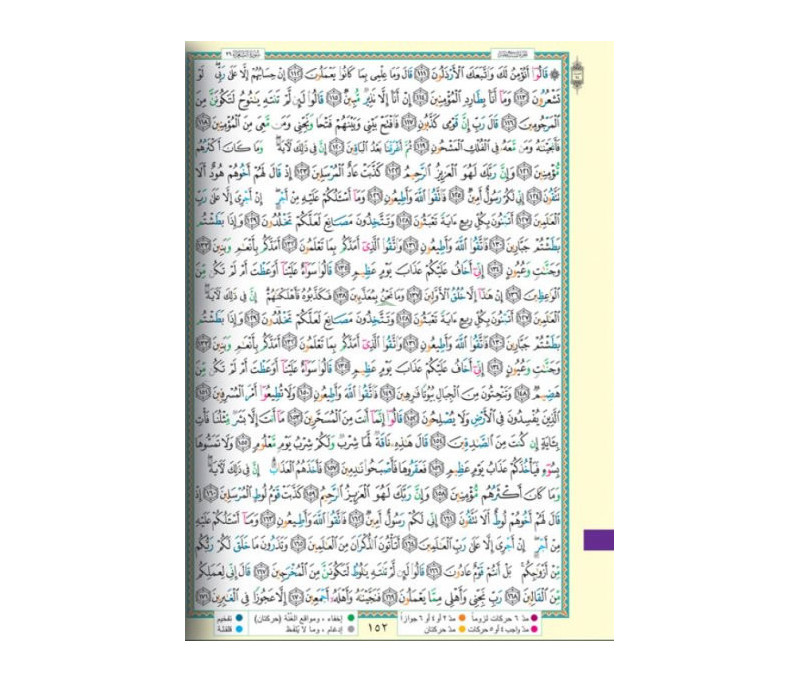 سورة الشعراء ٢٦
۞ قَالُوٓا۟ أَنُؤْمِنُ لَكَ وَٱتَّبَعَكَ ٱلْأَرْذَلُونَ ١١١ قَالَ وَمَا عِلْمِى بِمَا كَانُوا۟ يَعْمَلُونَ ١١٢ إِنْ حِسَابُهُمْ إِلَّا عَلَىٰ رَبِّى لَوْ
تَشْعُرُونَ ١١٣ وَمَآ أَنَا۠ بِطَارِدِ ٱلْمُؤْمِنِينَ ١١٤ إِنْ أَنَا۠ إِلَّا نَذِيرٌ مُّبِينٌ ١١٥ قَالُوا۟ لَئِن لَّمْ تَنتَهِ يَٰنُوحُ لَتَكُونَنَّ مِنَ
ٱلْمَرْجُومِينَ ١١٦ قَالَ رَبِّ إِنَّ قَوْمِى كَذَّبُونِ ١١٧ فَٱفْتَحْ بَيْنِى وَبَيْنَهُمْ فَتْحًا وَنَجِّنِى وَمَن مَّعِىَ مِنَ ٱلْمُؤْمِنِينَ ١١٨
فَأَنجَيْنَٰهُ وَمَن مَّعَهُۥ فِى ٱلْفُلْكِ ٱلْمَشْحُونِ ١١٩ ثُمَّ أَغْرَقْنَا بَعْدُ ٱلْبَاقِينَ ١٢٠ إِنَّ فِى ذَٰلِكَ لَءَايَةً وَمَا كَانَ أَكْثَرُهُم
مُّؤْمِنِينَ ١٢١ وَإِنَّ رَبَّكَ لَهُوَ ٱلْعَزِيزُ ٱلرَّحِيمُ ١٢٢ كَذَّبَتْ عَادٌ ٱلْمُرْسَلِينَ ١٢٣ إِذْ قَالَ لَهُمْ أَخُوهُمْ هُودٌ أَلَا
تَتَّقُونَ ١٢٤ إِنِّى لَكُمْ رَسُولٌ أَمِينٌ ١٢٥ فَٱتَّقُوا۟ ٱللَّهَ وَأَطِيعُونِ ١٢٦ وَمَآ أَسْـَٔلُكُمْ عَلَيْهِ مِنْ أَجْرٍ إِنْ أَجْرِىَ إِلَّا عَلَىٰ رَبِّ
ٱلْعَٰلَمِينَ ١٢٧ أَتَبْنُونَ بِكُلِّ رِيعٍ ءَايَةً تَعْبَثُونَ ١٢٨ وَتَتَّخِذُونَ مَصَانِعَ لَعَلَّكُمْ تَخْلُدُونَ ١٢٩ وَإِذَا بَطَشْتُم
بَطَشْتُمْ جَبَّارِينَ ١٣٠ فَٱتَّقُوا۟ ٱللَّهَ وَأَطِيعُونِ ١٣١ وَٱتَّقُوا۟ ٱلَّذِىٓ أَمَدَّكُم بِمَا تَعْلَمُونَ ١٣٢ أَمَدَّكُم بِأَنْعَٰمٍ وَبَنِينَ ١٣٣
وَجَنَّٰتٍ وَعُيُونٍ ١٣٤ إِنِّىٓ أَخَافُ عَلَيْكُمْ عَذَابَ يَوْمٍ عَظِيمٍ ١٣٥ قَالُوا۟ سَوَآءٌ عَلَيْنَآ أَوَعَظْتَ أَمْ لَمْ تَكُن مِّنَ
ٱلْوَٰعِظِينَ ١٣٦ إِنْ هَٰذَآ إِلَّا خُلُقُ ٱلْأَوَّلِينَ ١٣٧ وَمَا نَحْنُ بِمُعَذَّبِينَ ١٣٨ فَكَذَّبُوهُ فَأَهْلَكْنَٰهُمْ إِنَّ فِى ذَٰلِكَ لَءَايَةً
ٱلْعَٰلَمِينَ ١٢٧ أَتَبْنُونَ بِكُلِّ رِيعٍ ءَايَةً تَعْبَثُونَ ١٢٨ وَتَتَّخِذُونَ مَصَانِعَ لَعَلَّكُمْ تَخْلُدُونَ ١٢٩ وَإِذَا بَطَشْتُم
بَطَشْتُمْ جَبَّارِينَ ١٣٠ فَٱتَّقُوا۟ ٱللَّهَ وَأَطِيعُونِ ١٣١ وَٱتَّقُوا۟ ٱلَّذِىٓ أَمَدَّكُم بِمَا تَعْلَمُونَ ١٣٢ أَمَدَّكُم بِأَنْعَٰمٍ وَبَنِينَ ١٣٣
وَجَنَّٰتٍ وَعُيُونٍ ١٣٤ إِنِّىٓ أَخَافُ عَلَيْكُمْ عَذَابَ يَوْمٍ عَظِيمٍ ١٣٥ قَالُوا۟ سَوَآءٌ عَلَيْنَآ أَوَعَظْتَ أَمْ لَمْ تَكُن مِّنَ
هَضِيمٌ ١٤٨ وَتَنْحِتُونَ مِنَ ٱلْجِبَالِ بُيُوتًا فَٰرِهِينَ ١٤٩ فَٱتَّقُوا۟ ٱللَّهَ وَأَطِيعُونِ ١٥٠ وَلَا تُطِيعُوٓا۟ أَمْرَ ٱلْمُسْرِفِينَ ١٥١
ٱلَّذِينَ يُفْسِدُونَ فِى ٱلْأَرْضِ وَلَا يُصْلِحُونَ ١٥٢ قَالُوٓا۟ إِنَّمَآ أَنتَ مِنَ ٱلْمُسَحَّرِينَ ١٥٣ مَآ أَنتَ إِلَّا بَشَرٌ مِّثْلُنَا فَأْتِ
بِـَٔايَةٍ إِن كُنتَ مِنَ ٱلصَّٰدِقِينَ ١٥٤ قَالَ هَٰذِهِۦ نَاقَةٌ لَّهَا شِرْبٌ وَلَكُمْ شِرْبُ يَوْمٍ مَّعْلُومٍ ١٥٥ وَلَا تَمَسُّوهَا
بِسُوٓءٍ فَيَأْخُذَكُمْ عَذَابُ يَوْمٍ عَظِيمٍ ١٥٦ فَعَقَرُوهَا فَأَصْبَحُوا۟ نَٰدِمِينَ ١٥٧ فَأَخَذَهُمُ ٱلْعَذَابُ إِنَّ فِى ذَٰلِكَ لَءَايَةً
وَمَا كَانَ أَكْثَرُهُم مُّؤْمِنِينَ ١٥٨ وَإِنَّ رَبَّكَ لَهُوَ ٱلْعَزِيزُ ٱلرَّحِيمُ ١٥٩ كَذَّبَتْ قَوْمُ لُوطٍ ٱلْمُرْسَلِينَ ١٦٠ إِذْ
قَالَ لَهُمْ أَخُوهُمْ لُوطٌ أَلَا تَتَّقُونَ ١٦١ إِنِّى لَكُمْ رَسُولٌ أَمِينٌ ١٦٢ فَٱتَّقُوا۟ ٱللَّهَ وَأَطِيعُونِ ١٦٣ وَمَآ أَسْـَٔلُكُمْ عَلَيْهِ
مِنْ أَجْرٍ إِنْ أَجْرِىَ إِلَّا عَلَىٰ رَبِّ ٱلْعَٰلَمِينَ ١٦٤ أَتَأْتُونَ ٱلذُّكْرَانَ مِنَ ٱلْعَٰلَمِينَ ١٦٥ وَتَذَرُونَ مَا خَلَقَ لَكُمْ رَبُّكُم
مِّنْ أَزْوَٰجِكُم بَلْ أَنتُمْ قَوْمٌ عَادُونَ ١٦٦ قَالُوا۟ لَئِن لَّمْ تَنتَهِ يَٰلُوطُ لَتَكُونَنَّ مِنَ ٱلْمُخْرَجِينَ ١٦٧ قَالَ إِنِّى لِعَمَلِكُم
مِّنَ ٱلْقَالِينَ ١٦٨ رَبِّ نَجِّنِى وَأَهْلِى مِمَّا يَعْمَلُونَ ١٦٩ فَنَجَّيْنَٰهُ وَأَهْلَهُۥٓ أَجْمَعِينَ ١٧٠ إِلَّا عَجُوزًا فِى ٱلْغَٰبِرِينَ ١٧١
مدّ ٦ حركات لزوماً مدّ ٢ أو ٤ أو ٦ جوازاً ١٥٢ إخفاء، ومواقع الغُنَّة (حركتان) تفخيم
مدّ واجب ٤ أو ٥ حركات مدّ حركتان إدغام، وما لا يُلفَظ قلقلة